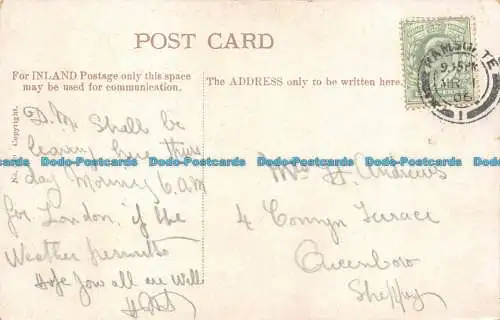 POST CARD
For INLAND Postage only this space
may be used for communication.
The ADDRESS only to be written here.
No.
Copyright.
RAMSGATE
1
D. M Shall be
leaving here thurs
day Morning 6. A.M
for London, if the
Weather permits
Hope you all are Well
Mrs H. Andrews
4 Comyn Terrace
Queenboro
Sheppy
Dodo-Postcards Dodo-Postcards Dodo-Postcards Dodo-Postcards Dodo-Postcards
Dodo-Postcards Dodo-Postcards Dodo-Postcards Dodo-Postcards Dodo-Postcards